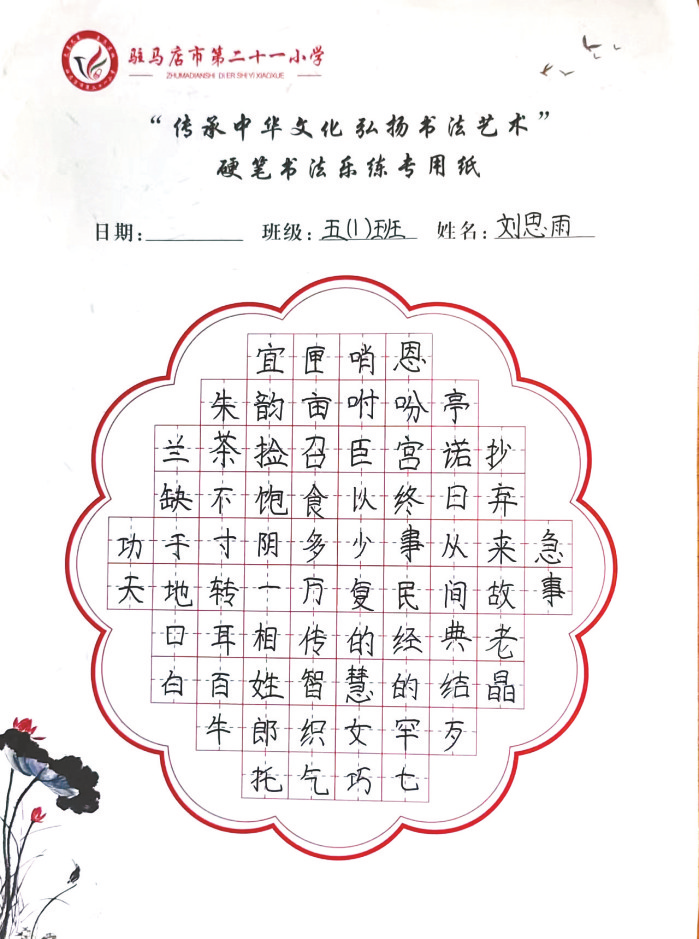 驻马店市第二十一小学
ZHUMADIANSHI DIERSHIYI XIAOXUE
“传承中华文化 弘扬书法艺术”
硬笔书法乐练专用纸
日期: 班级: 五(1)班 姓名: 刘思雨
宜匣哨恩
朱韵亩咐吩亭
兰茶捡召臣宫诺抄
缺不饱食以终日弃
功于寸阴多少事从来急
天地转一万复民间故事
口耳相传的经典老
白百姓智慧的结晶
牛郎织女罕歹
托气巧七